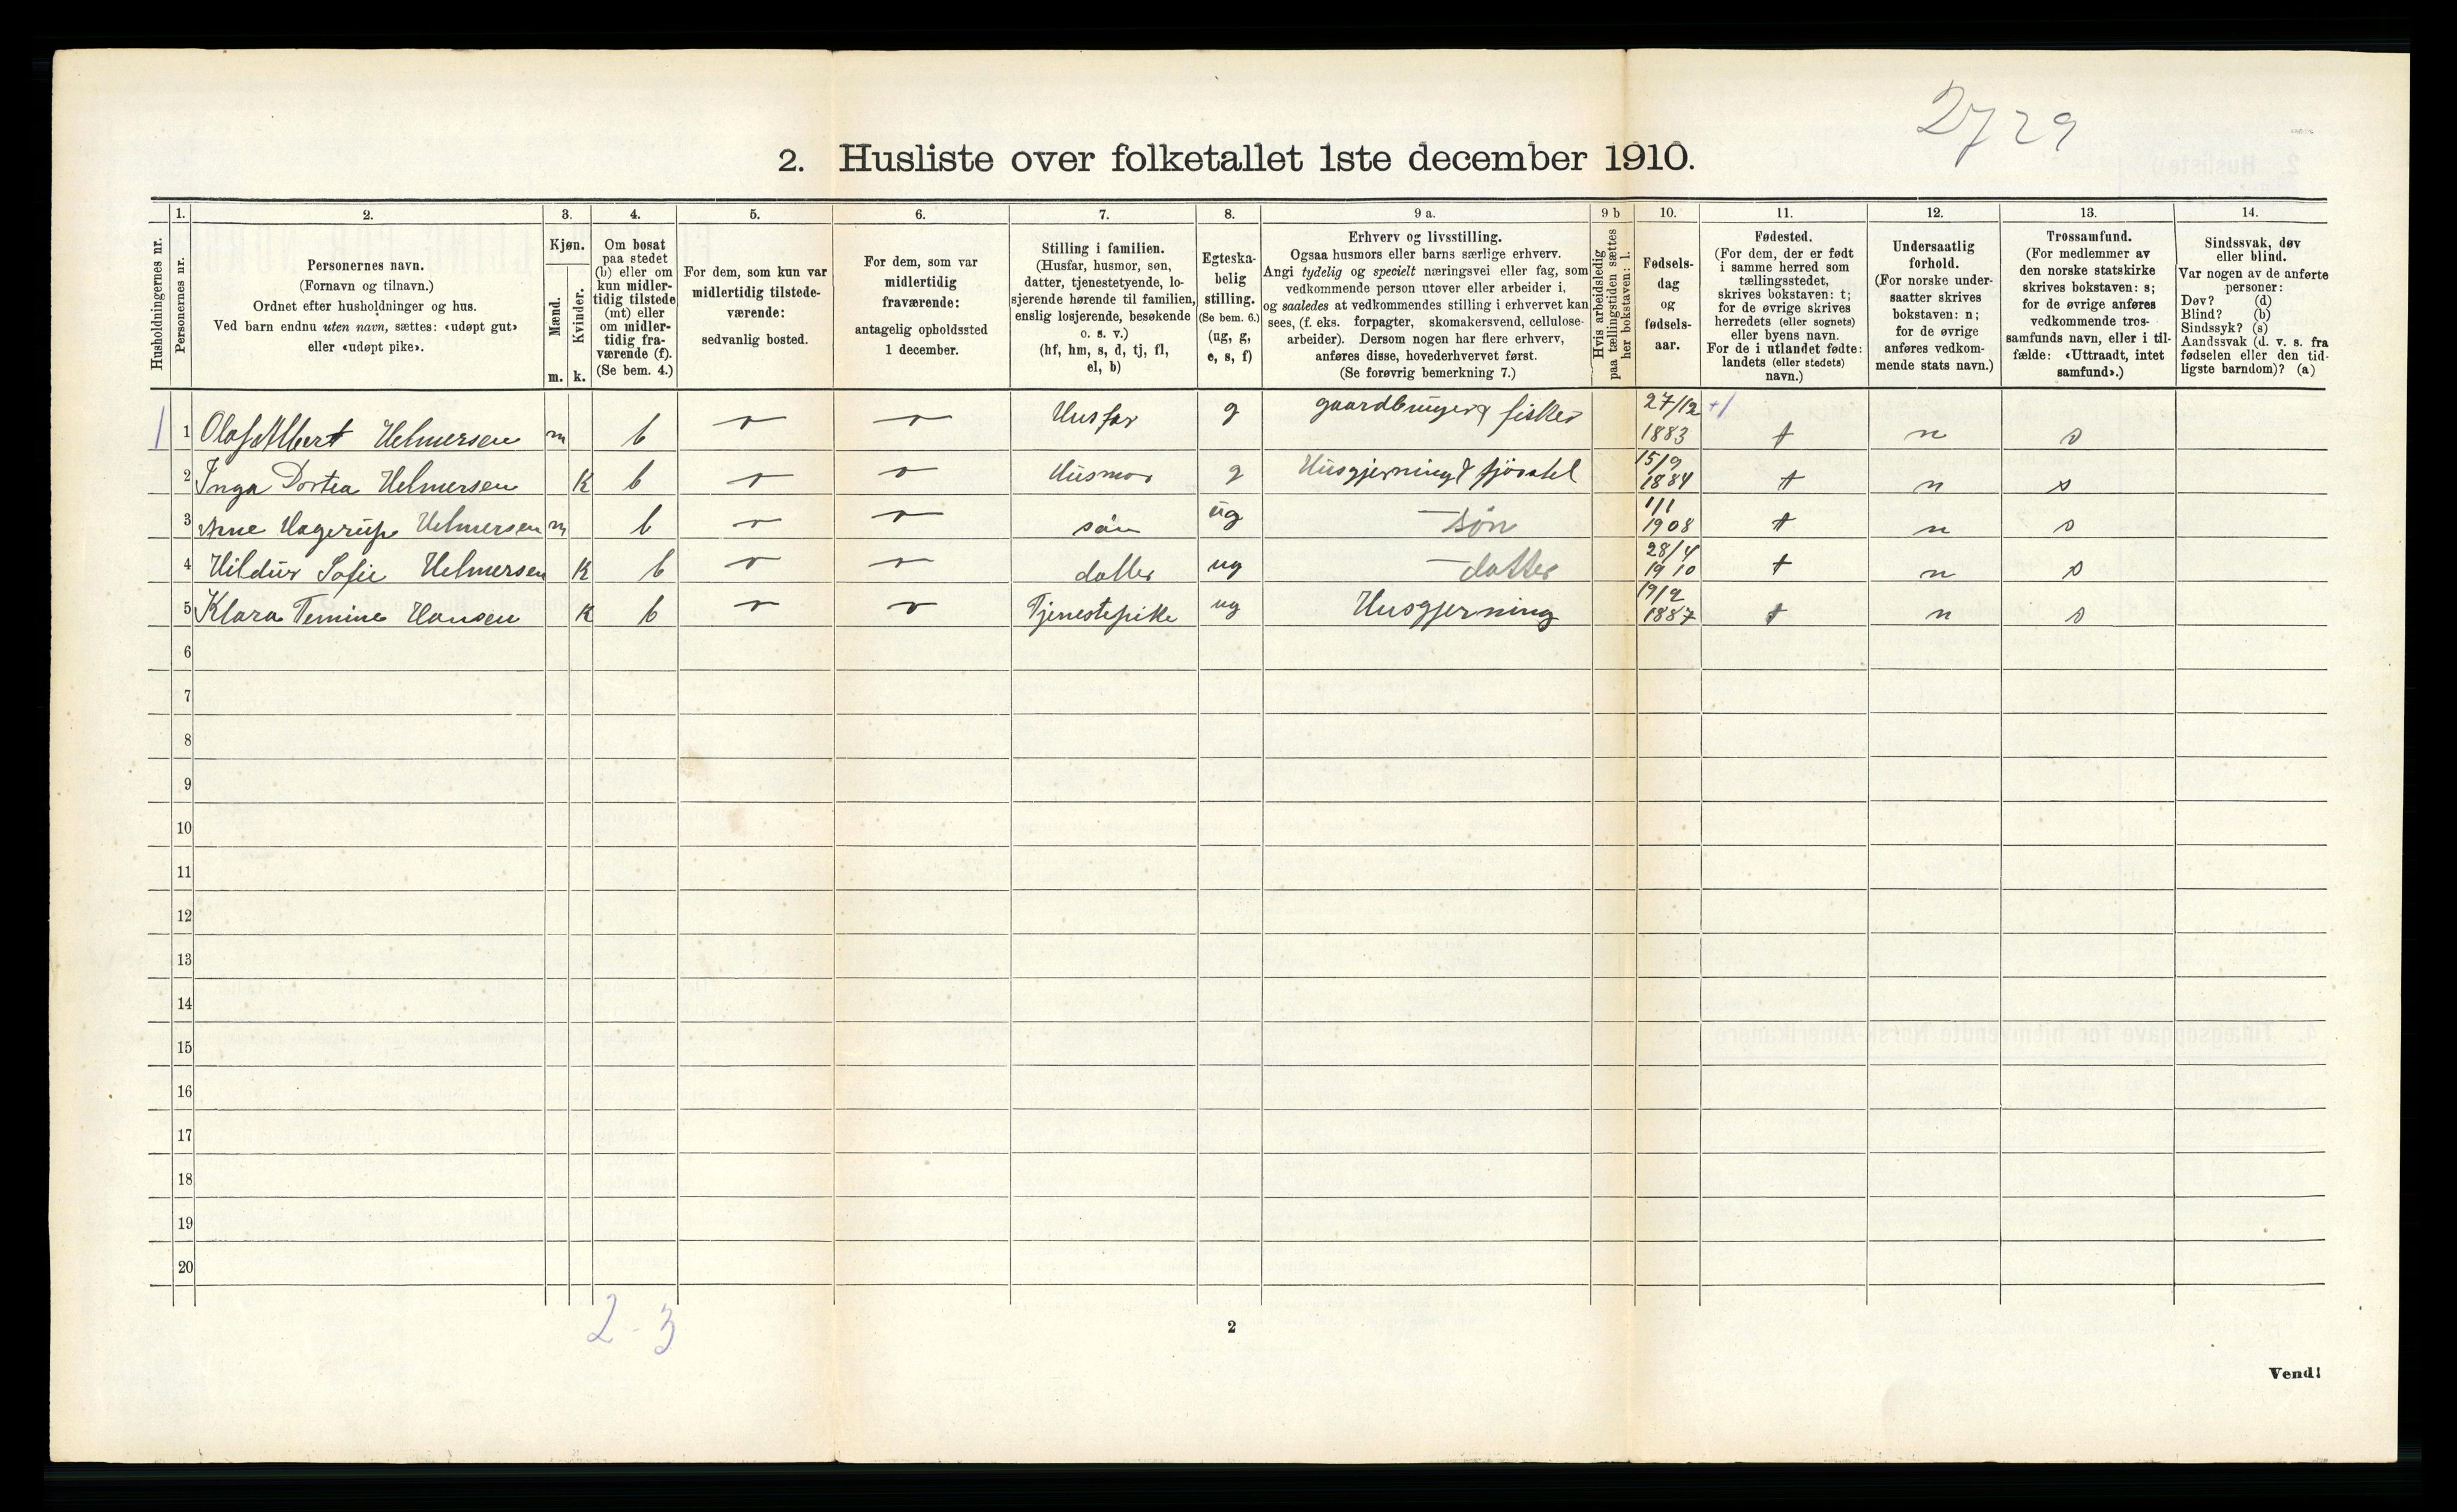 2729
2. Husliste over folketallet 1ste december 1910.
Husholdningernes nr.
1. Personernes nr.
2. Personernes navn.
(Fornavn og tilnavn.)
Ordnet efter husholdninger og hus.
Ved barn endnu uten navn, sættes: «udøpt gut»
eller «udøpt pike».
3. Kjøn.
Mænd. m.
Kvinder. k.
4. Om bosat
paa stedet
(b) eller om
kun midler-
tidig tilstede
(mt) eller
om midler-
tidig fra-
værende (f).
(Se bem. 4.)
5. For dem, som kun var
midlertidig tilstede-
værende:
sedvanlig bosted.
6. For dem, som var
midlertidig
fraværende:
antagelig opholdssted
1 december.
7. Stilling i familien.
(Husfar, husmor, søn,
datter, tjenestetyende, lo-
sjerende hørende til familien,
enslig losjerende, besøkende
o. s. v.)
(hf, hm, s, d, tj, fl,
el, b)
8. Egteska-
belig
stilling.
(Se bem. 6.)
(ug, g,
e, s, f)
9 a. Erhverv og livsstilling.
Ogsaa husmors eller barns særlige erhverv.
Angi tydelig og specielt næringsvei eller fag, som
vedkommende person utøver eller arbeider i,
og saaledes at vedkommendes stilling i erhvervet kan
sees, (f. eks. forpagter, skomakersvend, cellulose-
arbeider). Dersom nogen har flere erhverv,
anføres disse, hovederhvervet først.
(Se forøvrig bemerkning 7.)
9 b Hvis arbeidsledig
paa tællingstiden sættes
her bokstaven: l.
10. Fødsels-
dag
og
fødsels-
aar.
11. Fødested.
(For dem, der er født
i samme herred som
tællingsstedet,
skrives bokstaven: t;
for de øvrige skrives
herredets (eller sognets)
eller byens navn.
For de i utlandet fødte:
landets (eller stedets)
navn.)
12. Undersaatlig
forhold.
(For norske under-
saatter skrives
bokstaven: n;
for de øvrige
anføres vedkom-
mende stats navn.)
13. Trossamfund.
(For medlemmer av
den norske statskirke
skrives bokstaven: s;
for de øvrige anføres
vedkommende tros-
samfunds navn, eller i til-
fælde: «Uttraadt, intet
samfund».)
14. Sindssvak, døv
eller blind.
Var nogen av de anførte
personer:
Døv? (d)
Blind? (b)
Sindssyk? (s)
Aandssvak (d. v. s. fra
fødselen eller den tid-
ligste barndom)? (a)
1 1 Olaf Albert Helmersen m b Husfar g gaardbruger & fisker 27/12 1883 t n s
2 Inga Dortea Helmersen K b Husmor g Husgjerning & fjøsstel 15/9 1884 t n s
3 Arne Hagerup Helmersen m b søn ug søn 1/1 1908 t n s
4 Hildur Sofie Helmersen K b datter ug datter 28/4 1910 t n s
5 Klara Hansen K b Tjenestepike ug Husgjerning 1887 t n s
6
7
8
9
10
11
12
13
14
15
16
17
18
19
20
2-3
2
Vend!